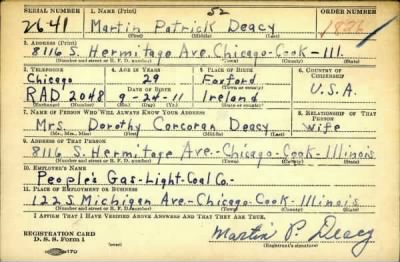 SERIAL NUMBER 1. NAME (Print) ORDER NUMBER
52
2641 Martin Patrick Deacy 1826
(First) (Middle) (Last)
2. ADDRESS (Print)
8116 S. Hermitage Ave. Chicago-Cook-Ill.
(Number and street or R. F. D. number) (Town) (County) (State)
3. TELEPHONE 4. AGE IN YEARS 5. PLACE OF BIRTH 6. COUNTRY OF CITIZENSHIP
Chicago 29 Foxford
DATE OF BIRTH (Town or county)
RAD 2048 9-24-11 Ireland U.S.A.
(Exchange) (Number) (Mo.) (Day) (Yr.) (State or country)
7. NAME OF PERSON WHO WILL ALWAYS KNOW YOUR ADDRESS 8. RELATIONSHIP OF THAT PERSON
Mrs. Dorothy Corcoran Deacy Wife
(Mr., Mrs., Miss) (First) (Middle) (Last)
9. ADDRESS OF THAT PERSON
8116 S. Hermitage Ave.-Chicago-Cook-Illinois
(Number and street or R. F. D. number) (Town) (County) (State)
10. EMPLOYER'S NAME
People's Gas-Light-Coal Co.-
11. PLACE OF EMPLOYMENT OR BUSINESS
122 S Michigan Ave.-Chicago-Cook-Illinois
(Number and street or R. F. D. number) (Town) (County) (State)
I AFFIRM THAT I HAVE VERIFIED ABOVE ANSWERS AND THAT THEY ARE TRUE.
REGISTRATION CARD
D. S. S. Form 1
Martin P. Deacy
(Registrant's signature)